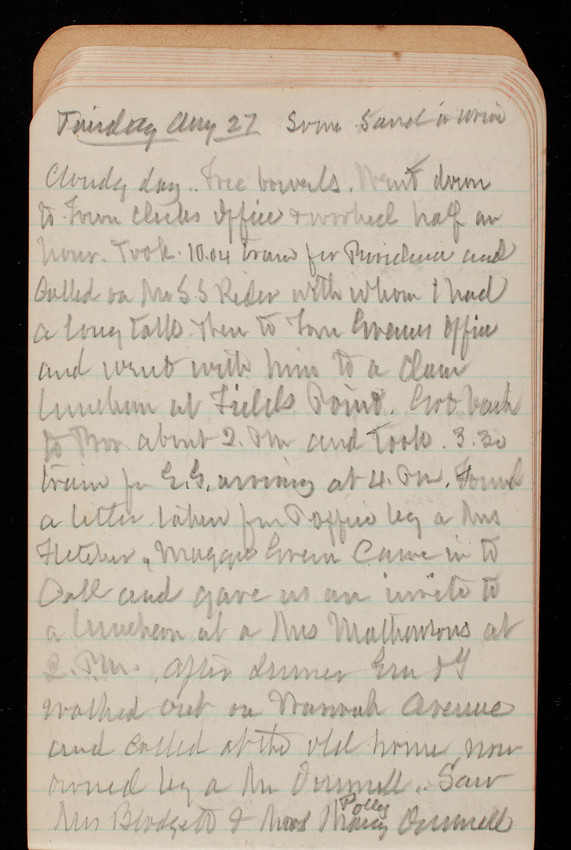 Tuesday Aug 27 Some Sand in urine
Cloudy day.. Free bowels. Went down
to Town Clerks Office & worked half an
hour. Took 10.04 train for Providence and
Called on Mr S S Rider with whom I had
a long talk then to Tom Greenes Office
and went with him to a Clam
luncheon at Fields Point. Got back
to Prov. about 2. PM and Took. 3.30
train for E.G. arriving at 4. PM. Found
a letter taken from P office by a Mrs
Fletcher, Maggie Green Came in to
Call and gave us an invite to
a luncheon at a Mrs Mathewsons at
2. P.M. After dinner Em & I
walked out on Avenue
and called at the old home now
owned by a Mr . Saw
Mrs Blodgett & Polly